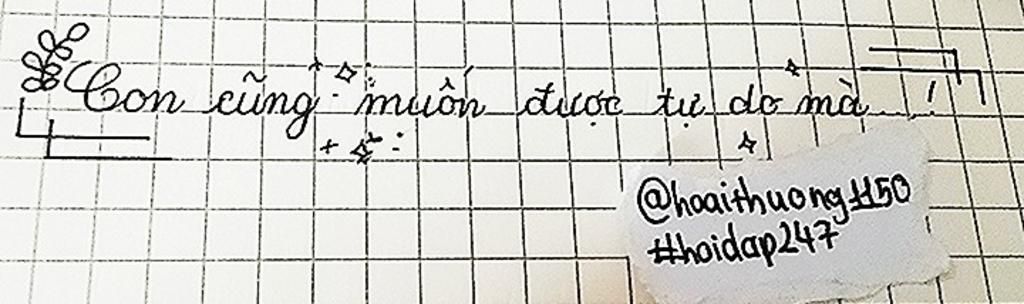 Con cũng muốn được tự do mà...!
@hoaithuong1150
#hoidap247